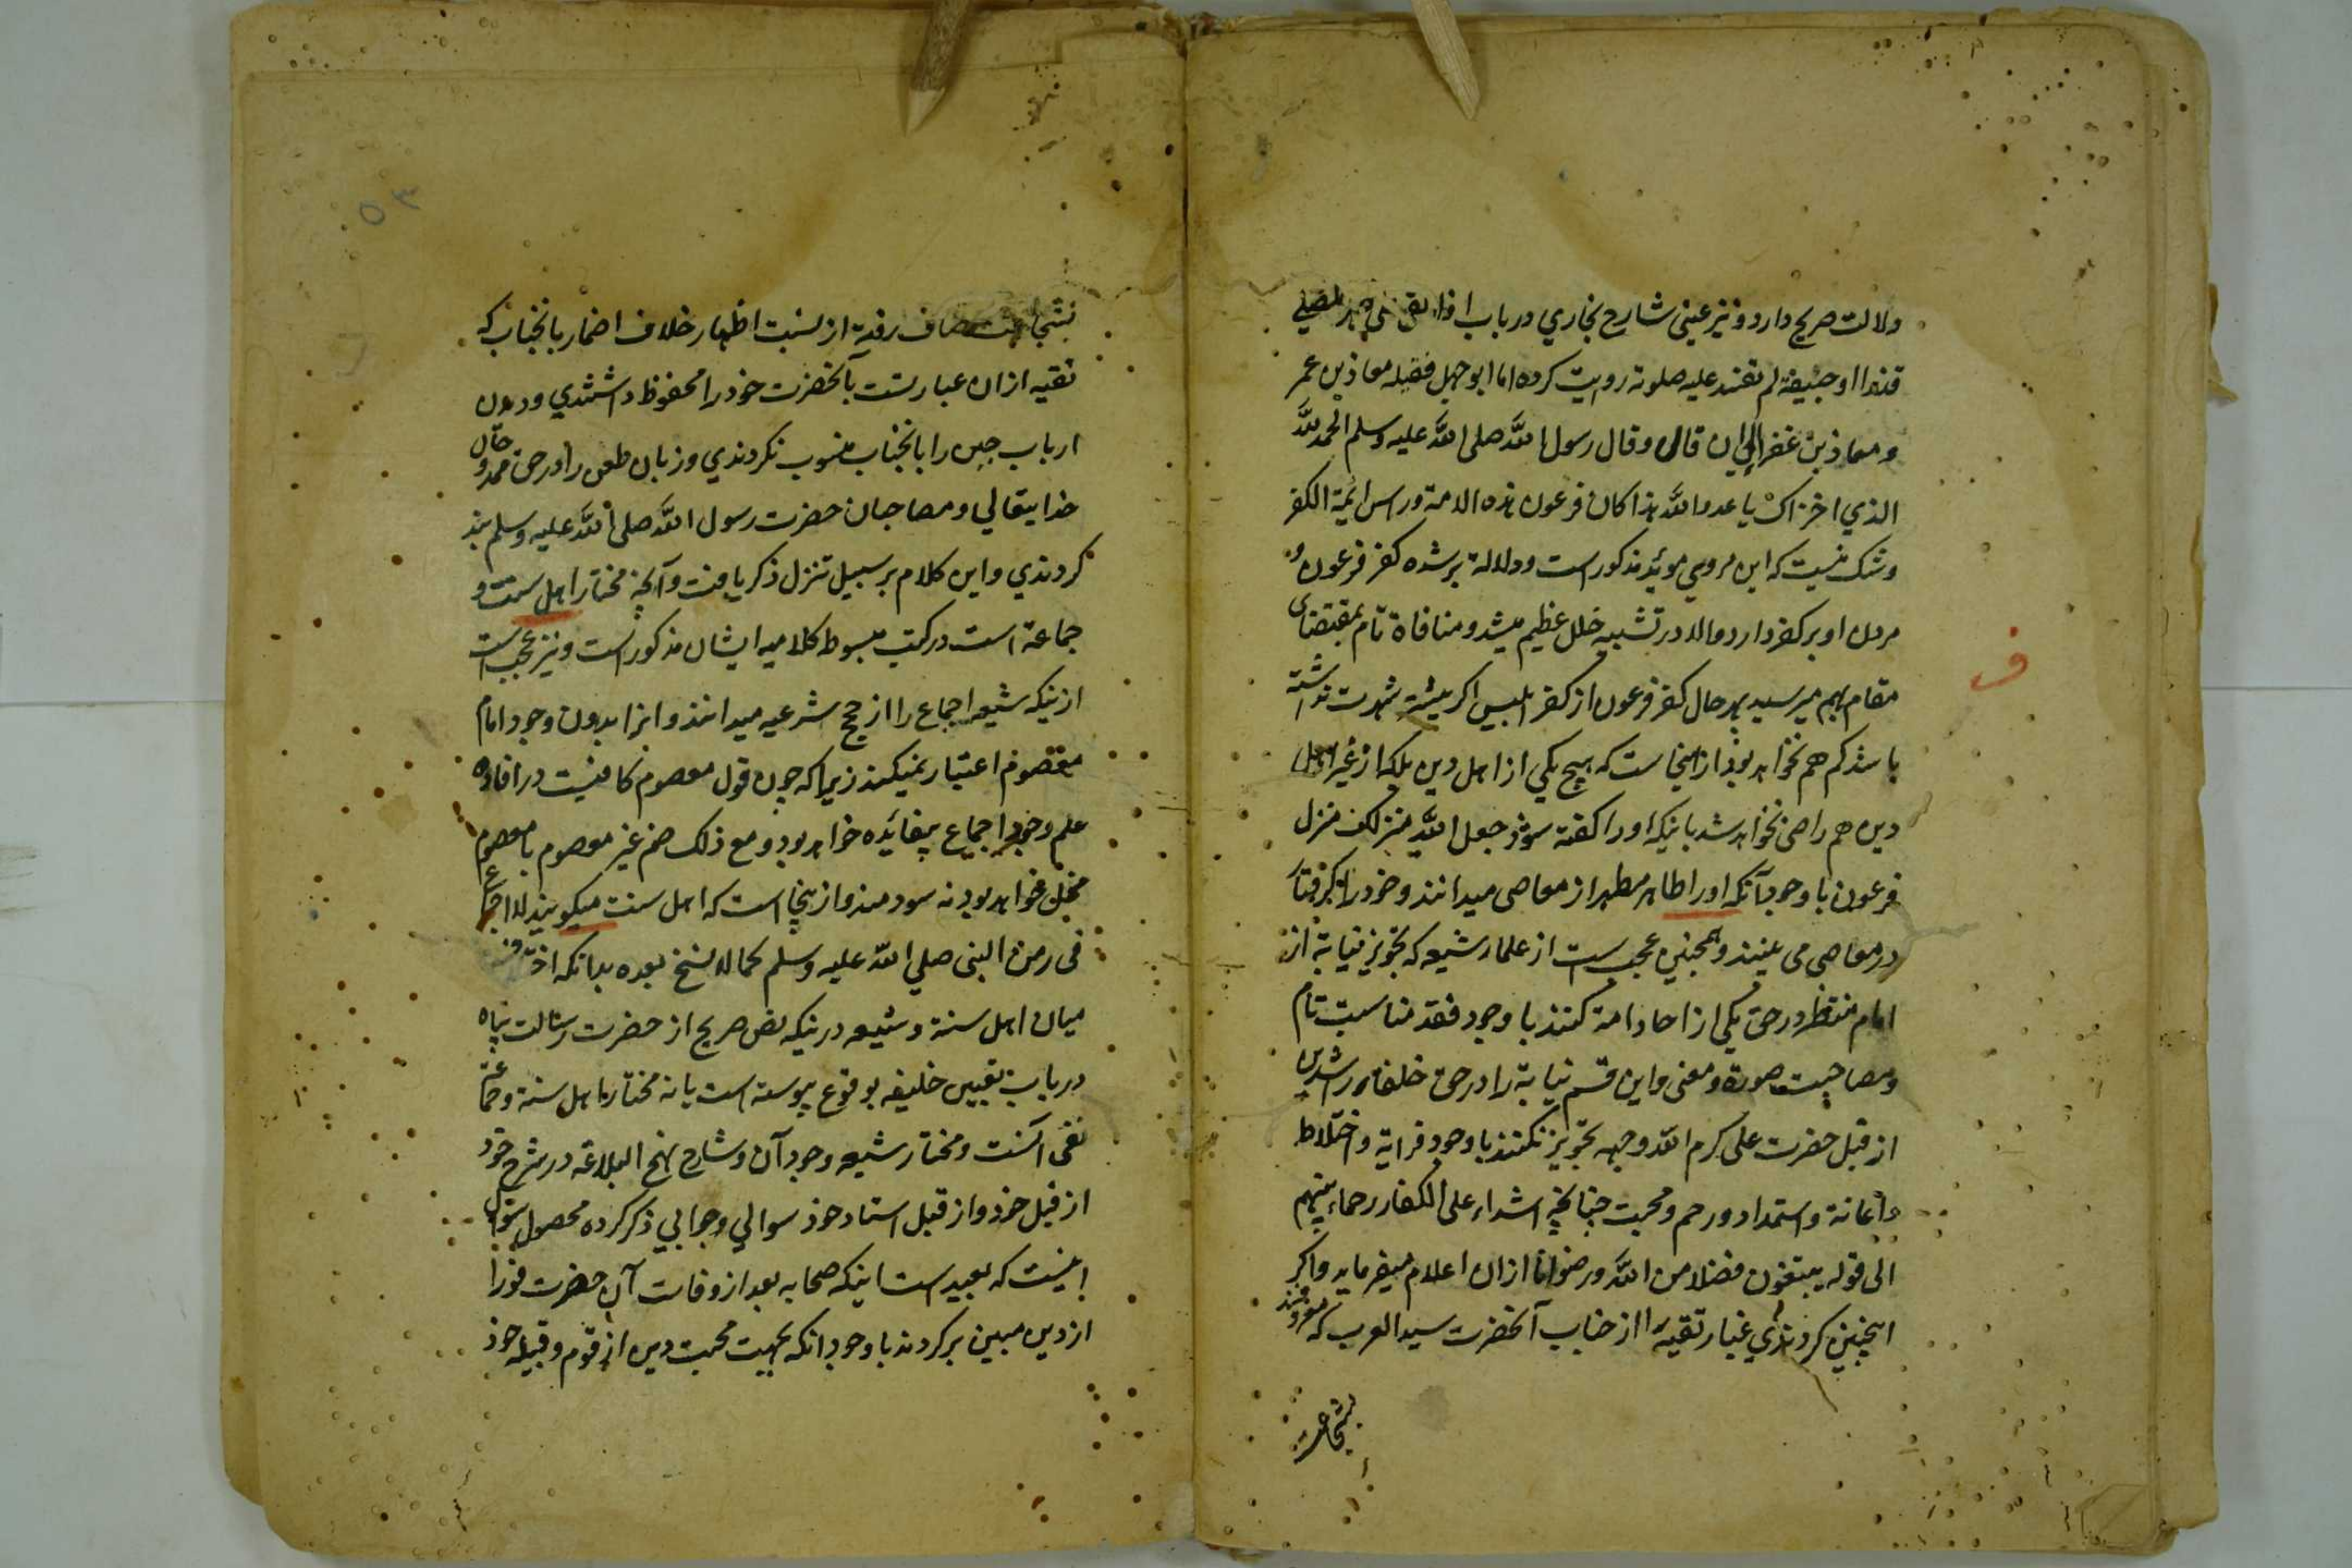 دلالت صریح دارد و نیز عینی شارح بخاري در باب اذا القی علی ظهر المصلي
قذرا او جیفة لم تفسد علیه صلوته روایت کرده اما ابو جهل فقتله معاذ بن عمر
و معاذ بن عفرا الی ان قال و قال رسول الله صلی الله علیه وسلم الحمد لله
الذي اخزاک یا عدو الله هذا کان فرعون هذه الامة و راس ائمة الکفر
و شک نیست که این مروي موئد مذکور است و دلالة برشده کفر فرعون و
مردن او بر کفر دارد و الا در تشبیه خلل عظیم میشد و منافاة تام بمقتضای
مقام بهم میرسید بهر حال کفر فرعون از کفر ابلیس اکر بیشتر شهرت نداشته
باشد کم هم نخواهد بود از اینجاست که هیچ یکي از اهل دین بلکه از غیر اهل
دین هم راضی نخواهد شد باینکه اورا کفته شود جعل الله منزلک منزل
فرعون با وجود آنکه اورا طاهر مطهر از معاصی میدانند و خود را کرفتار
در معاصی می بینند و همچنین عجب ست از علمار شیعه که تجویز نیابة از
امام منتظر در حق یکی از احاد امة کنند با وجود فقد مناسبت تام
و مصاحبت صورة و معنی و این قسم نیابة را در حق خلفاء راشدین
از قبل حضرت علی کرم الله وجهه تجویز نکنند با وجود قرابة و اختلاط
و اعانة و استمداد و رحم و محبت چنانچه اشداء علی الکفار رحماء بینهم
الی قوله یبتغون فضلا من الله و رضوانا ازان اعلام میفرماید و اکر
اینچنین کردندي غبار تقیه را از جناب آنحضرت سید العرب که معروفند
بشجاعت
۵۳
بشجاعت مصاف رفته از نسبت اظهار خلاف اضمار بانجناب که
تقیه ازان عبارتست آنحضرت خود را محفوظ داشتندي و در دون
ارباب جبن را بانجناب منسوب نکردندي و زبان طعن را در حق ممدوحان
خدایتعالي و مصاحبان حضرت رسول الله صلی الله علیه وسلم بند
کردندي و این کلام بر سبیل تنزل ذکر یافت و آنچه مختار اهل سنت و
جماعة است در کتب مبسوط کلامیه ایشان مذکور است و نیز عجب است
ازینکه شیعه اجماع را از حجج شرعیه میدانند و انرا بدون وجود امام
معصوم اعتبار نمیکنند زیرا که چون قول معصوم کافیست در افاده
علم وجود اجماع بیفائده خواهد بود و مع ذلک ضم غیر معصوم با معصوم
مخل خواهد بود نه سودمند و از ینجا است که اهل سنت میکویند لا اجماع
فی زمن النبی صلي الله علیه وسلم کما لا نسخ بعده بدانکه اختلاف
میان اهل سنة و شیعه درینکه نص صریح از حضرت رسالت پناه
در باب تعیین خلیفه بوقوع پیوسته است یا نه مختار اهل سنة و جماعة
نفی آنست و مختار شیعه وجود آن و شارح نهج البلاغه در شرح خود
از قبل خود و از قبل استاد خود سوالي و جوابي ذکر کرده محصول سوال
اینست که بعید است اینکه صحابه بعد از وفات آن حضرت فورا
از دین مبین برکردند با وجود انکه بجهت محبت دین از قوم و قبیله خود